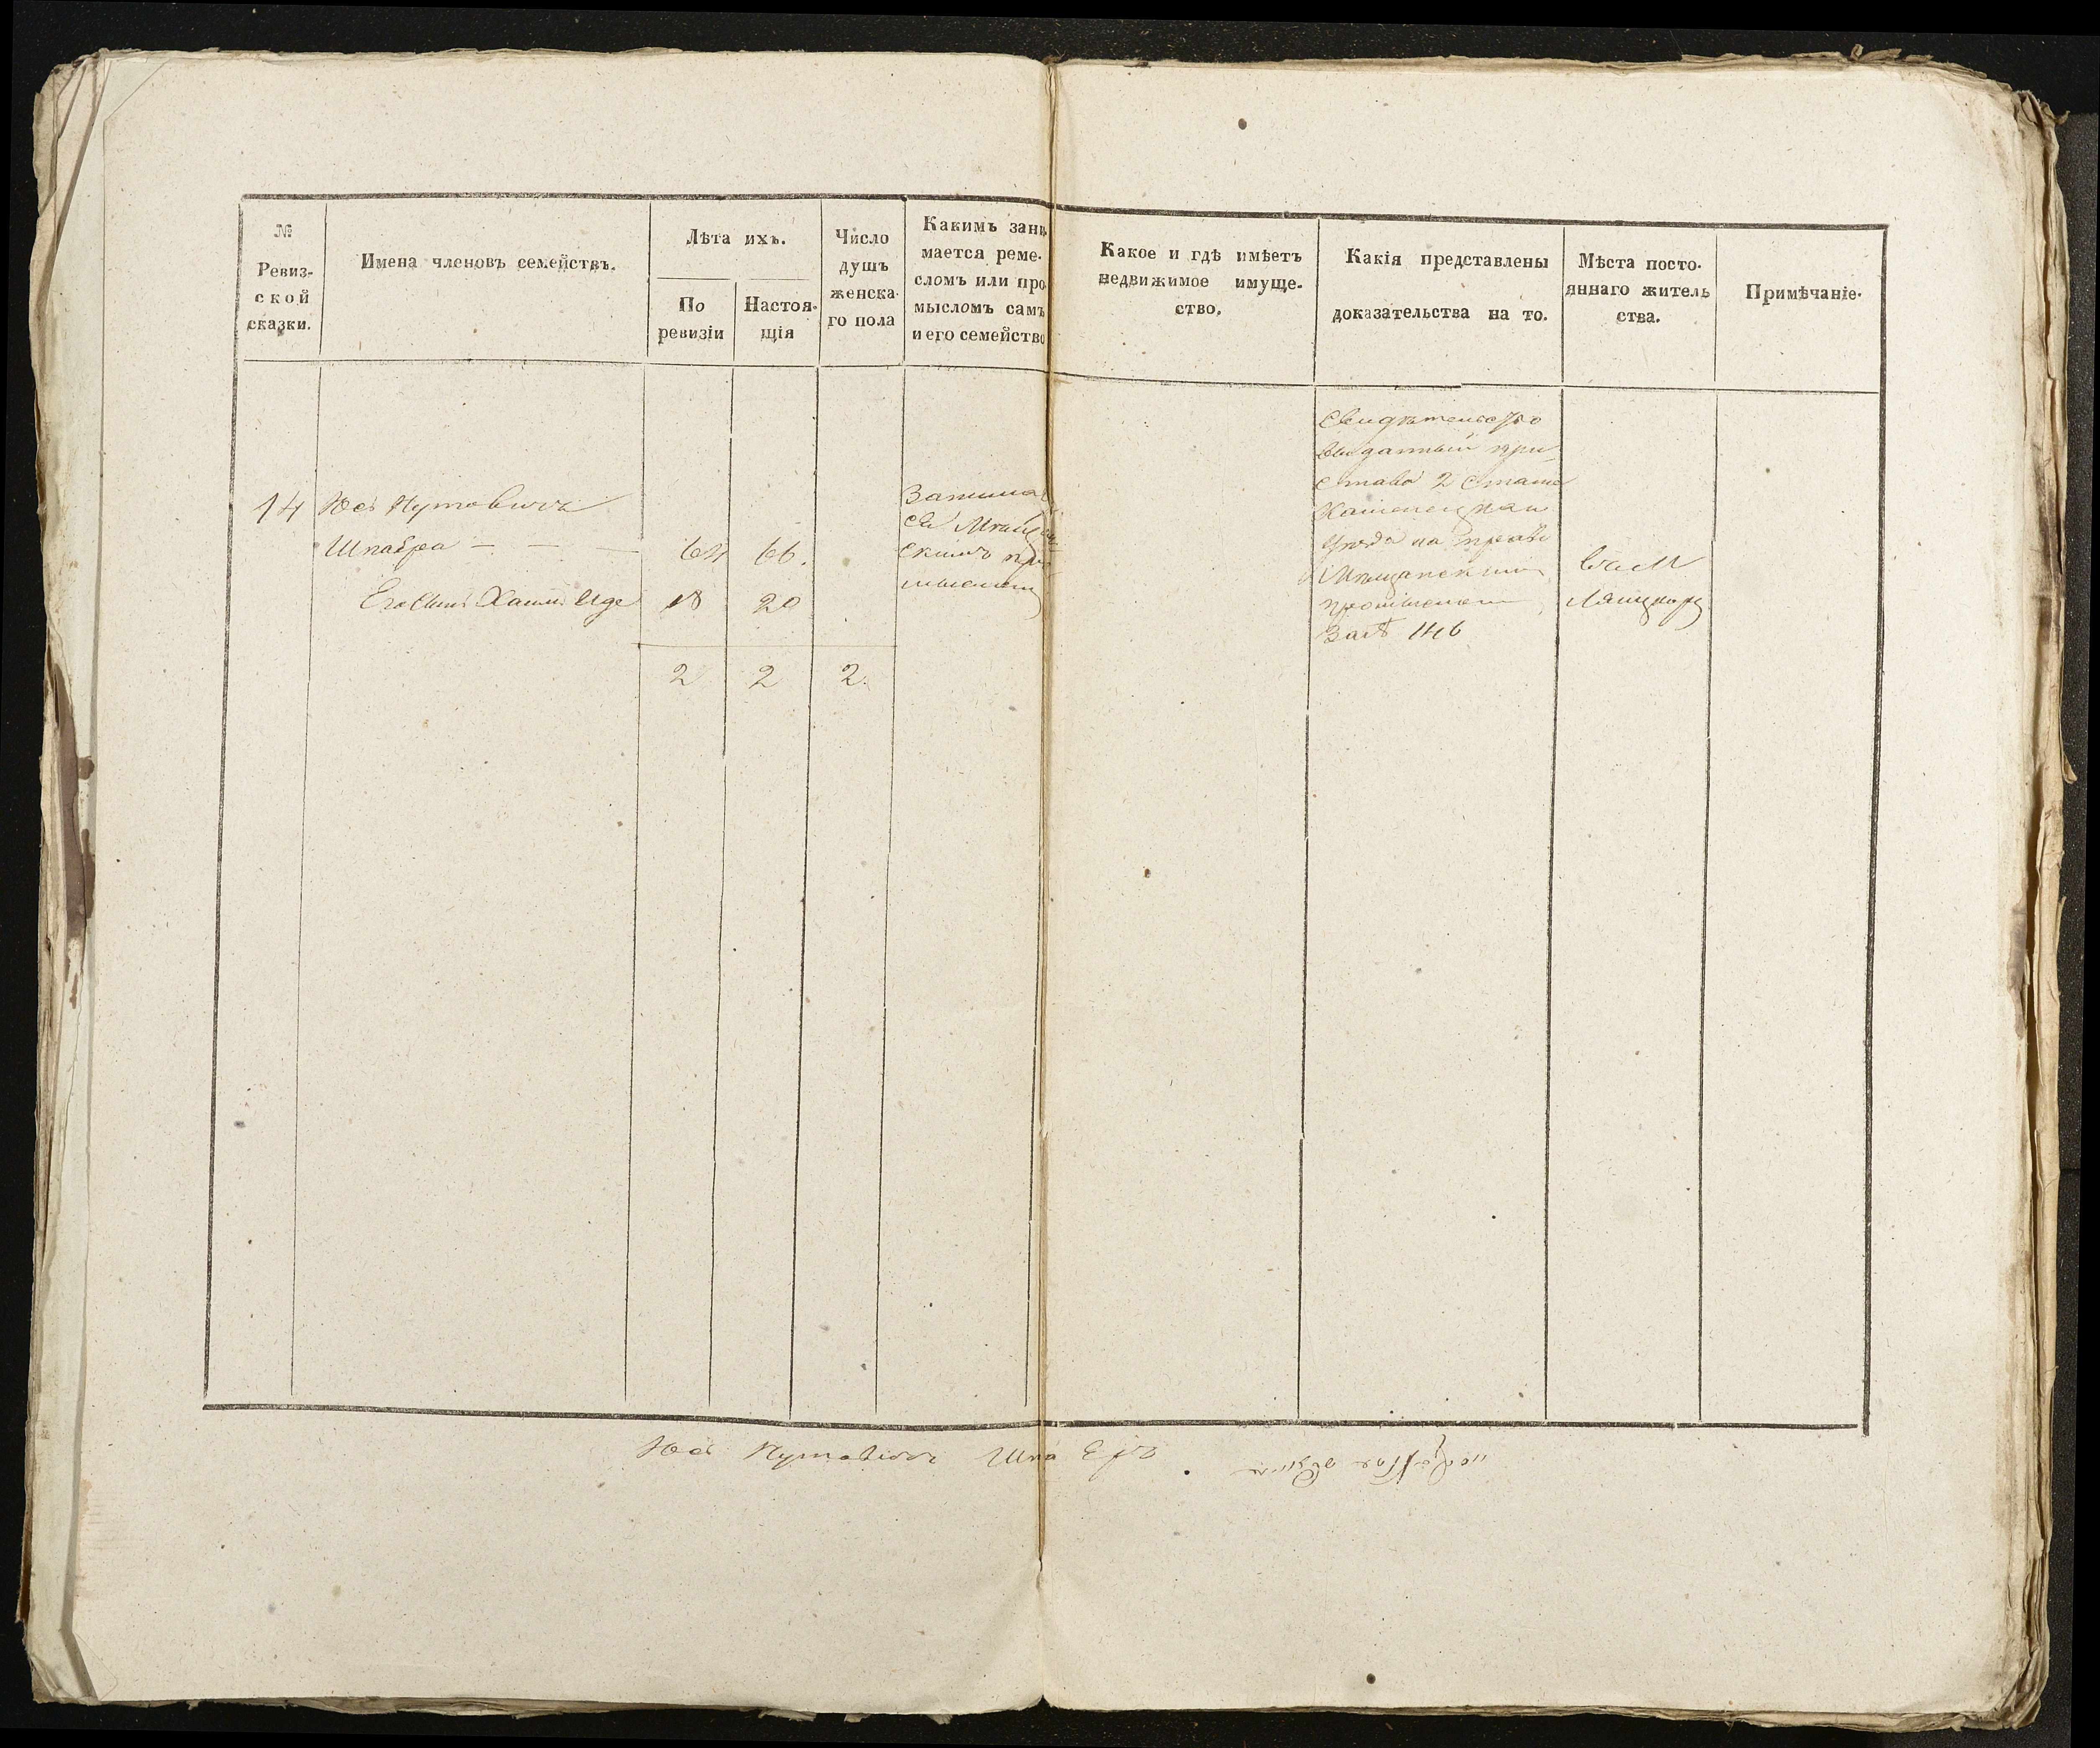 №
Ревиз-
ской
сказки.
Имена членовъ семействъ.
Лѣта ихъ.
По
ревизіи
Настоя-
щія
Число
душъ
женска-
го пола
Какимъ зани-
мается реме-
сломъ или про-
мысломъ самъ
и его семейство
Какое и гдѣ имѣетъ
недвижимое имуще-
ство.
Какія представлены
доказательства на то.
Мѣста посто-
яннаго житель
ства.
Примѣчаніе.
14 Юсь Нутовичъ
Шпабра — — — 64 66.
Его Сынъ Хаимъ 18 20
2 2 2.
Занима
ся
скимъ про
мысломъ
Свидѣтельство
выданный при
става 2 Стана
Каменецкаго
уѣзда на
Мѣщанскимъ
промысломъ
За № 146
В м
Ляцкорц
Юсь Нутовичъ Шпа